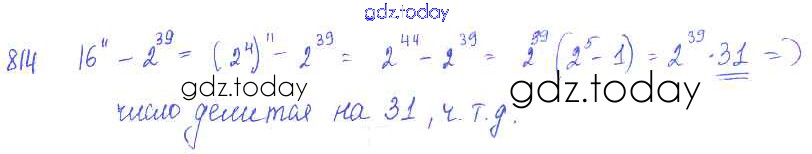 gdz.today
814 16¹¹ - 2³⁹ = (2⁴)¹¹ - 2³⁹ = 2⁴⁴ - 2³⁹ = 2³⁹ (2⁵ - 1) = 2³⁹ · 31 =>
gdz.today gdz.today
число делится на 31, ч.т.д.